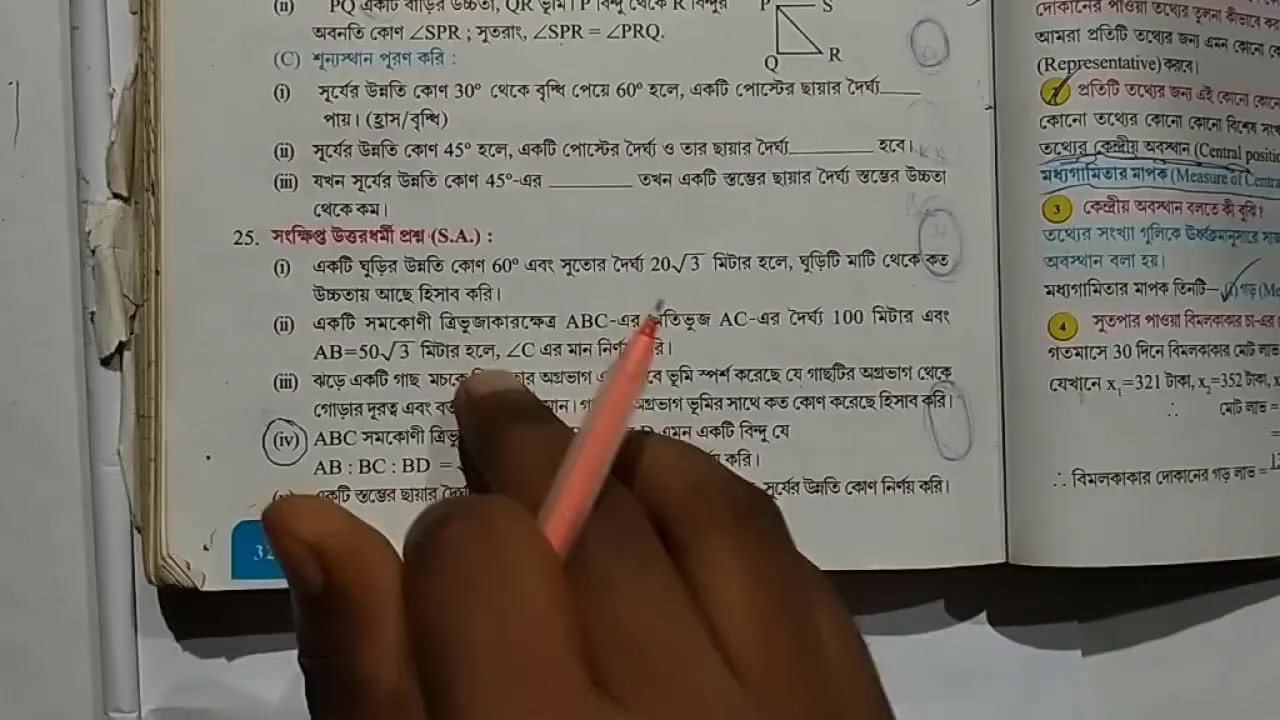 (ii) PQ একটি বাড়ির উচ্চতা, QR ভূমি। P বিন্দু থেকে R বিন্দুর
অবনতি কোণ ∠SPR ; সুতরাং, ∠SPR = ∠PRQ.
P S
Q R
(C) শূন্যস্থান পূরণ করি :
(i) সূর্যের উন্নতি কোণ 30° থেকে বৃদ্ধি পেয়ে 60° হলে, একটি পোস্টের ছায়ার দৈর্ঘ্য_____
পায়। (হ্রাস/বৃদ্ধি)
(ii) সূর্যের উন্নতি কোণ 45° হলে, একটি পোস্টের দৈর্ঘ্য ও তার ছায়ার দৈর্ঘ্য_________ হবে।
(iii) যখন সূর্যের উন্নতি কোণ 45°-এর _________ তখন একটি স্তম্ভের ছায়ার দৈর্ঘ্য স্তম্ভের উচ্চতা
থেকে কম।
25. সংক্ষিপ্ত উত্তরধর্মী প্রশ্ন (S.A.) :
(i) একটি ঘুড়ির উন্নতি কোণ 60° এবং সুতোর দৈর্ঘ্য 20√3 মিটার হলে, ঘুড়িটি মাটি থেকে কত
উচ্চতায় আছে হিসাব করি।
(ii) একটি সমকোণী ত্রিভুজাকারক্ষেত্র ABC-এর অতিভুজ AC-এর দৈর্ঘ্য 100 মিটার এবং
AB=50√3 মিটার হলে, ∠C এর মান নির্ণয় করি।
(iii) ঝড়ে একটি গাছ মচকে অগ্রভাগ ভূমি স্পর্শ করেছে যে গাছটির অগ্রভাগ থেকে
গোড়ার দূরত্ব এবং অগ্রভাগ ভূমির সাথে কত কোণ করেছে হিসাব করি।
(iv) ABC সমকোণী D এমন একটি বিন্দু যে
AB : BC : BD = করি।
একটি স্তম্ভের ছায়ার সূর্যের উন্নতি কোণ নির্ণয় করি।
32
দোকানের পাওয়া তথ্যের তুলনা কীভাবে
আমরা প্রতিটি তথ্যের জন্য এমন কোনো
(Representative) করবে।
প্রতিটি তথ্যের জন্য এই কোনো
কোনো তথ্যের কোনো কোনো বিশেষ
তথ্যের কেন্দ্রীয় অবস্থান (Central
মধ্যগামিতার মাপক (Measure of
3 কেন্দ্রীয় অবস্থান বলতে কী বুঝি?
তথ্যের সংখ্যা গুলিকে
অবস্থান বলা হয়।
মধ্যগামিতার মাপক তিনটি— গড়
4 সুতপার পাওয়া বিমলকাকার
গতমাসে 30 দিনে বিমলকাকার মোট
যেখানে x₁=321 টাকা, x₂=352 টাকা,
∴ মোট লাভ =
=
∴ বিমলকাকার দোকানের গড় লাভ =